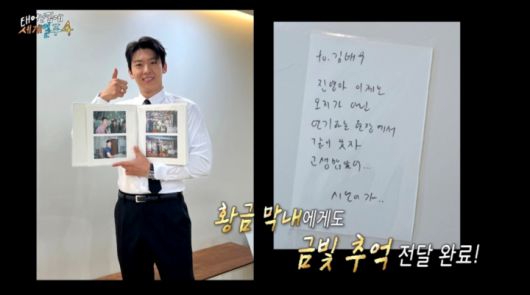 태어난 김에
세계일주4
to. 김배우
진영아 이제는
오지가 아닌
연기하는 현장에서
고생 많았어...
시언이가..
황금 막내에게도
금빛 추억 전달 완료!